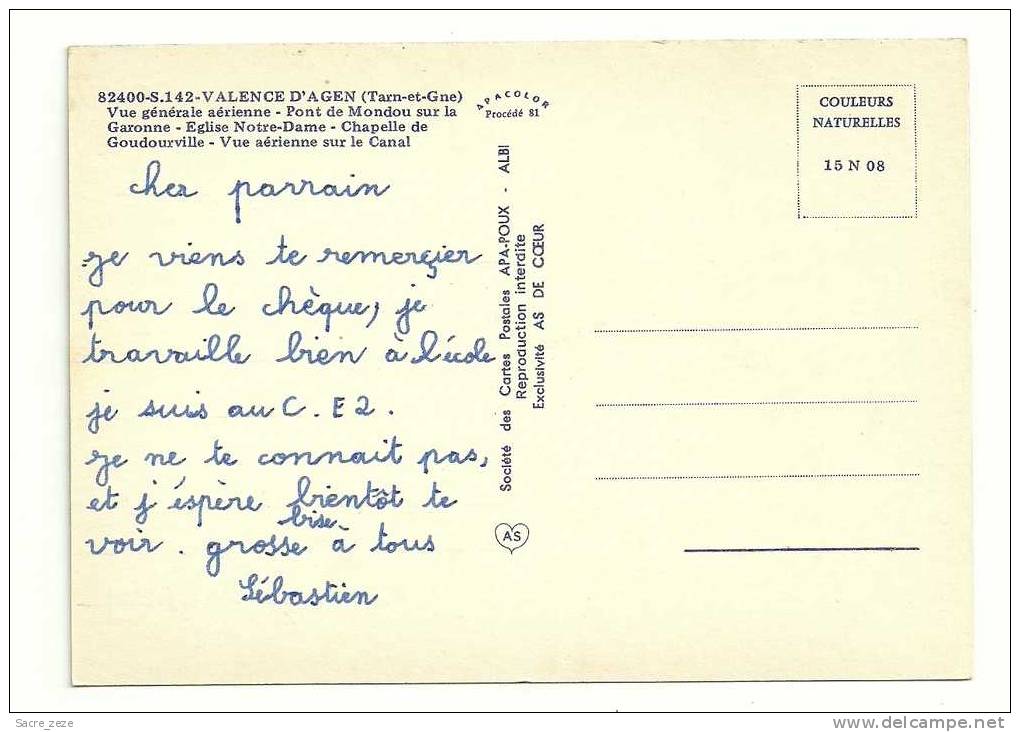 82400-S.142-VALENCE D'AGEN (Tarn-et-Gne)
Vue générale aérienne - Pont de Mondou sur la
Garonne - Eglise Notre-Dame - Chapelle de
Goudourville - Vue aérienne sur le Canal
APACOLOR
Procédé 81
COULEURS
NATURELLES
15 N 08
cher parrain
je viens te remerçier
pour le chèque, je
travaille bien à l'école
je suis au C.E2.
je ne te connait pas,
et j'éspère bientôt te
bise
voir. grosse à tous
Sébastien
Société des Cartes Postales APA-POUX - ALBI
Reproduction interdite
Exclusivité AS DE CŒUR
AS
Sacre_zeze
www.delcampe.net